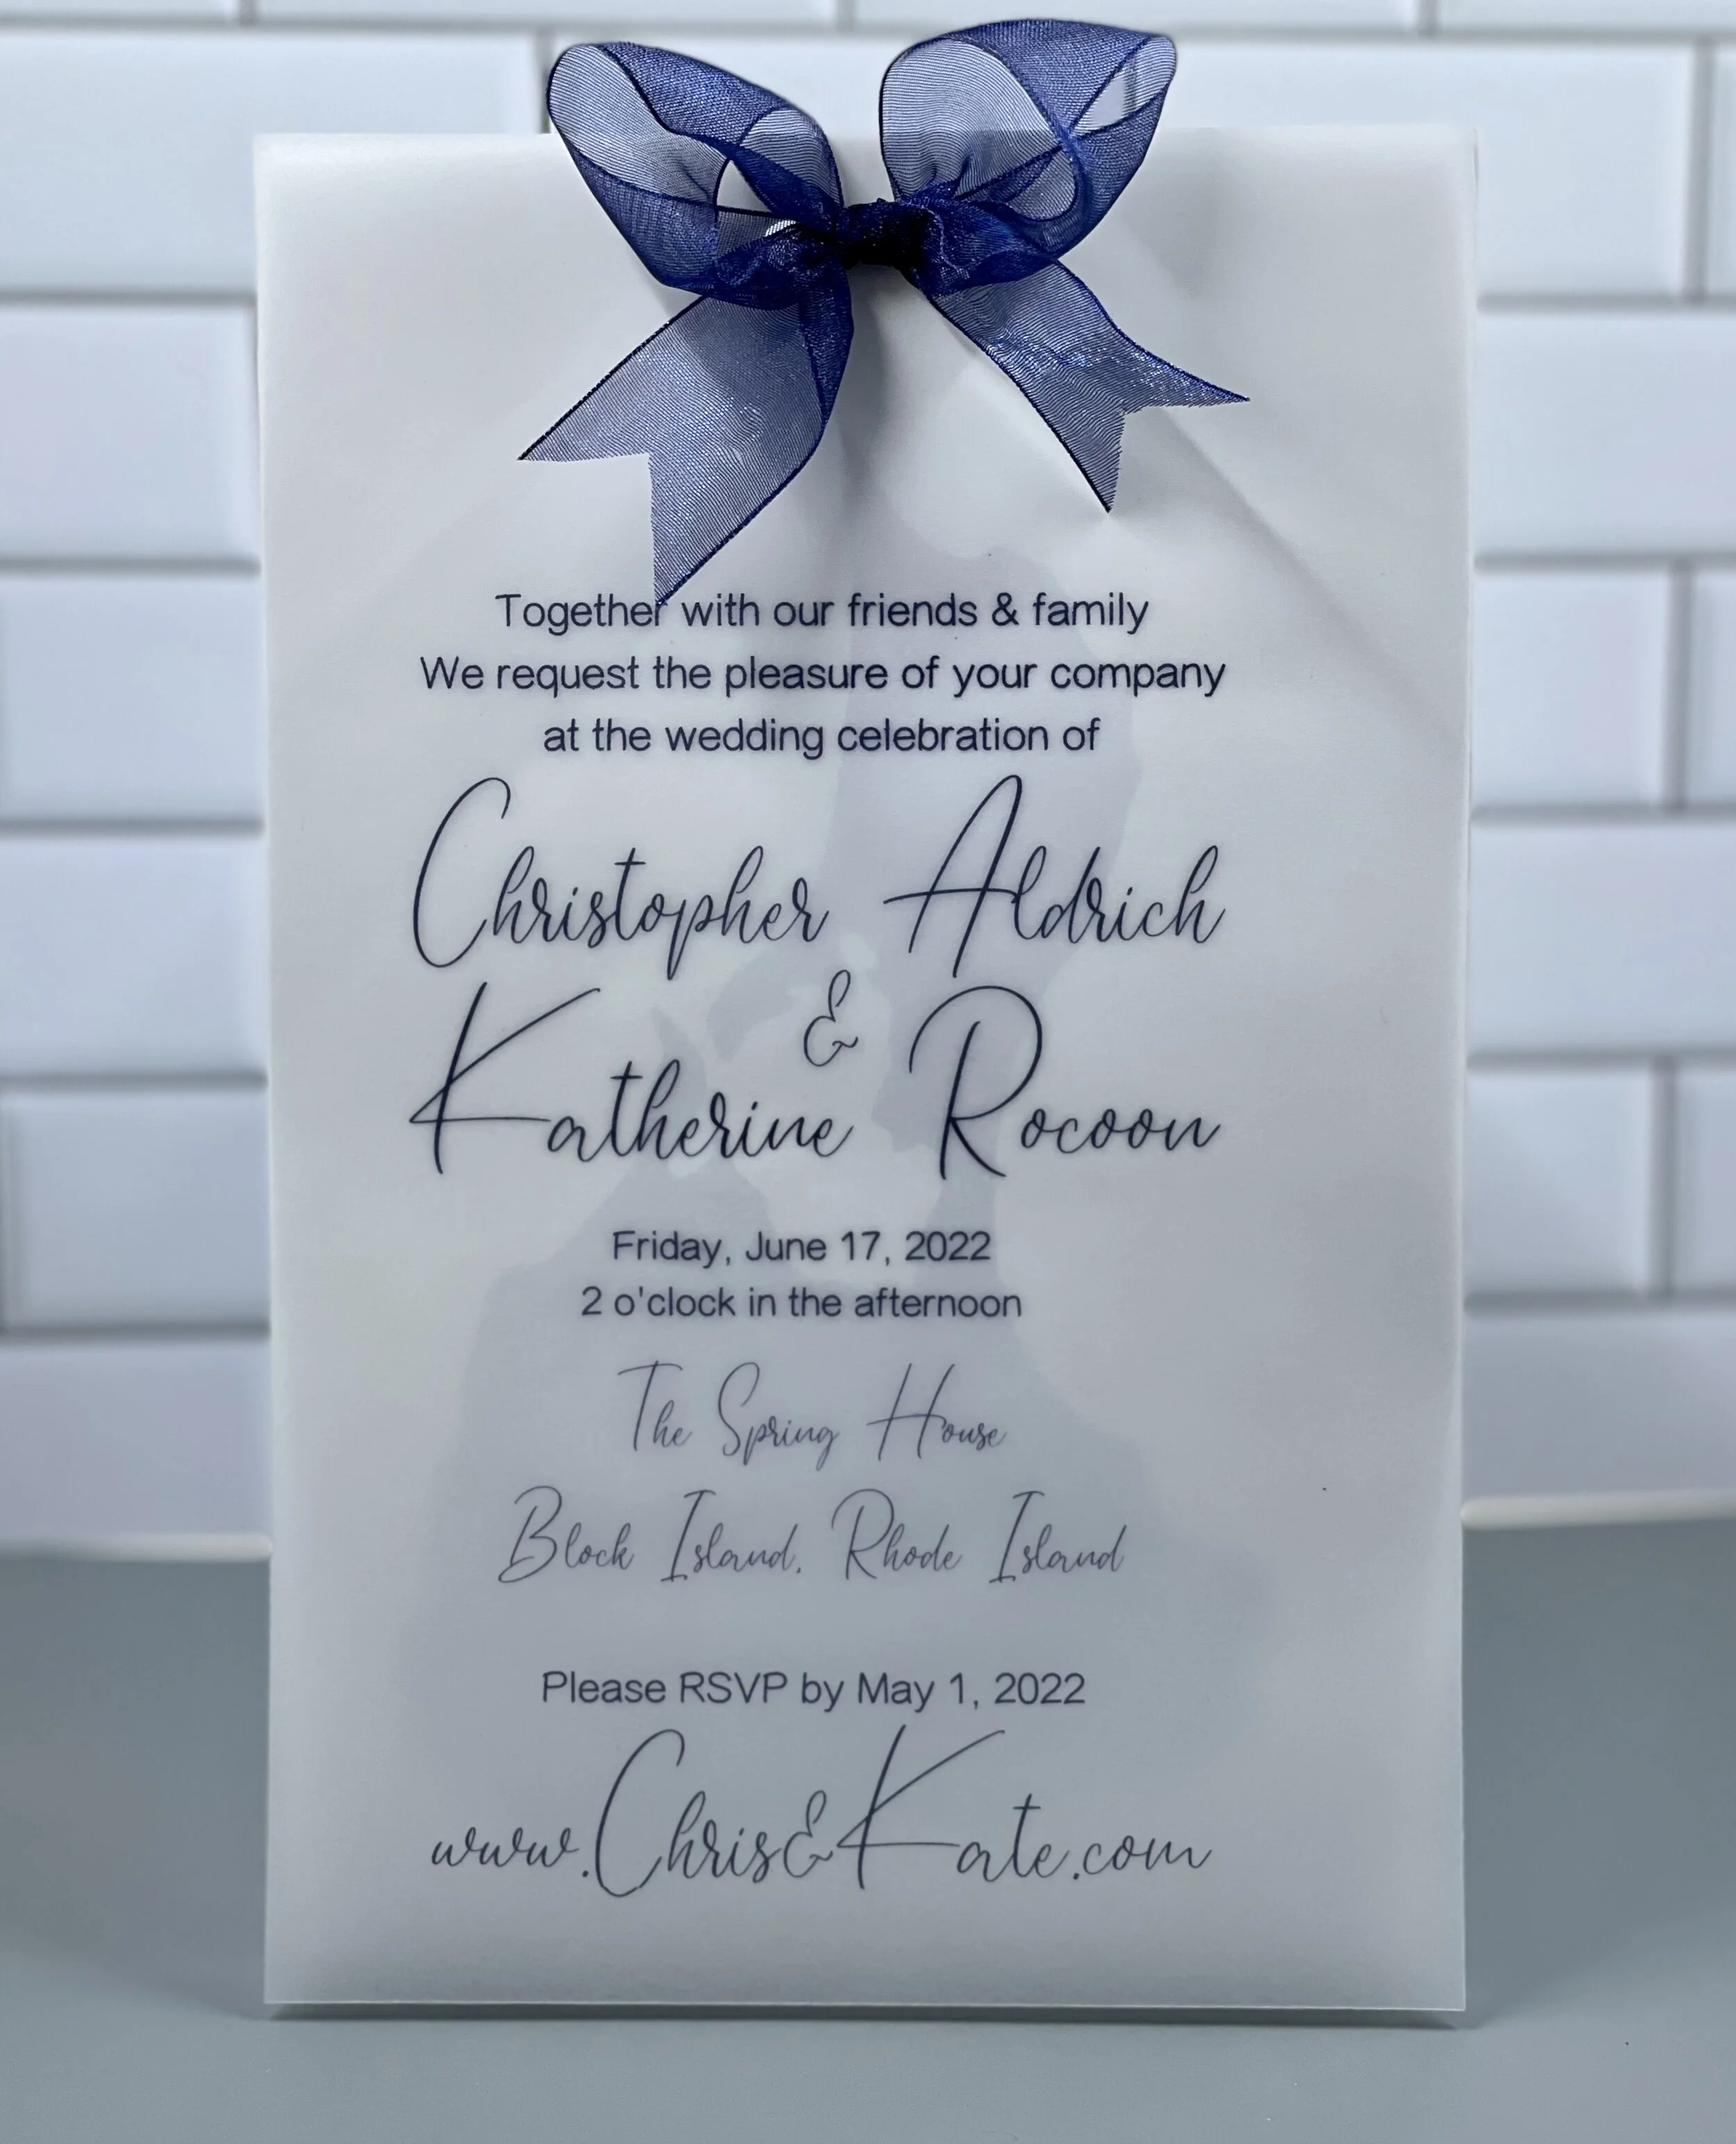 Together with our friends & family
We request the pleasure of your company
at the wedding celebration of
Christopher Aldrich
&
Katherine Rocoon
Friday, June 17, 2022
2 o'clock in the afternoon
The Spring House
Block Island, Rhode Island
Please RSVP by May 1, 2022
www.Chris&Kate.com